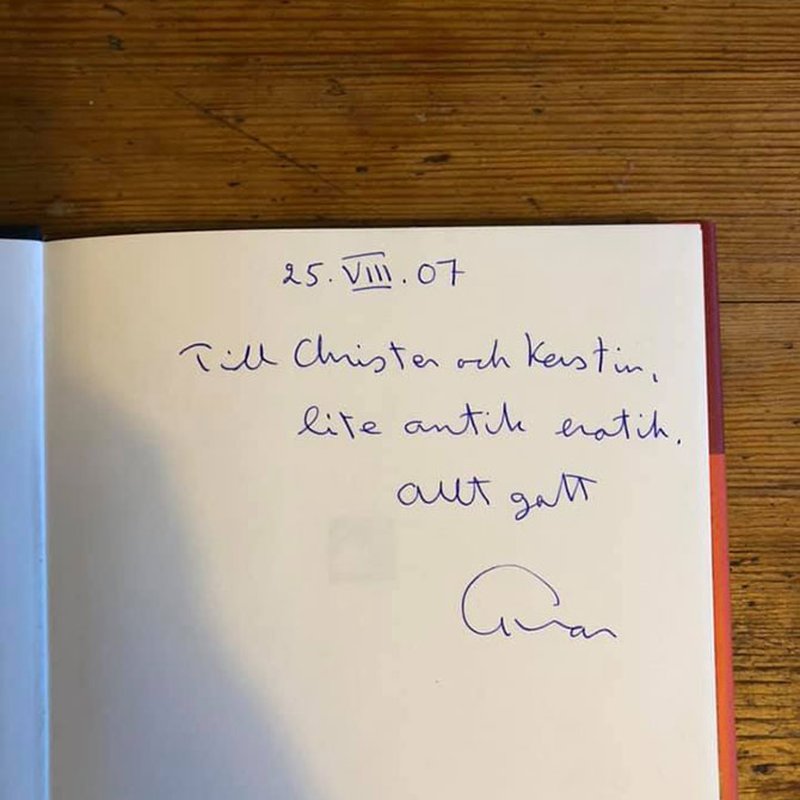 25. VIII. 07
Till Christer och Kerstin,
lite antik erotik.
Allt gott